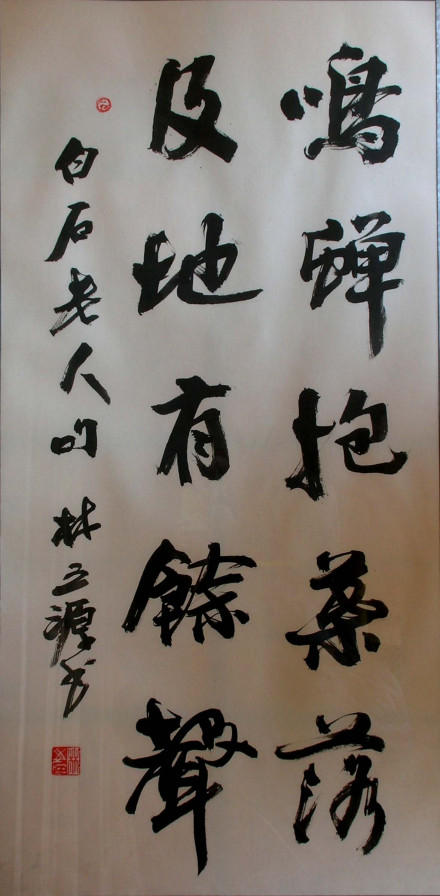 鳴蟬抱葉落
及地有餘聲
白石老人句 林之源书